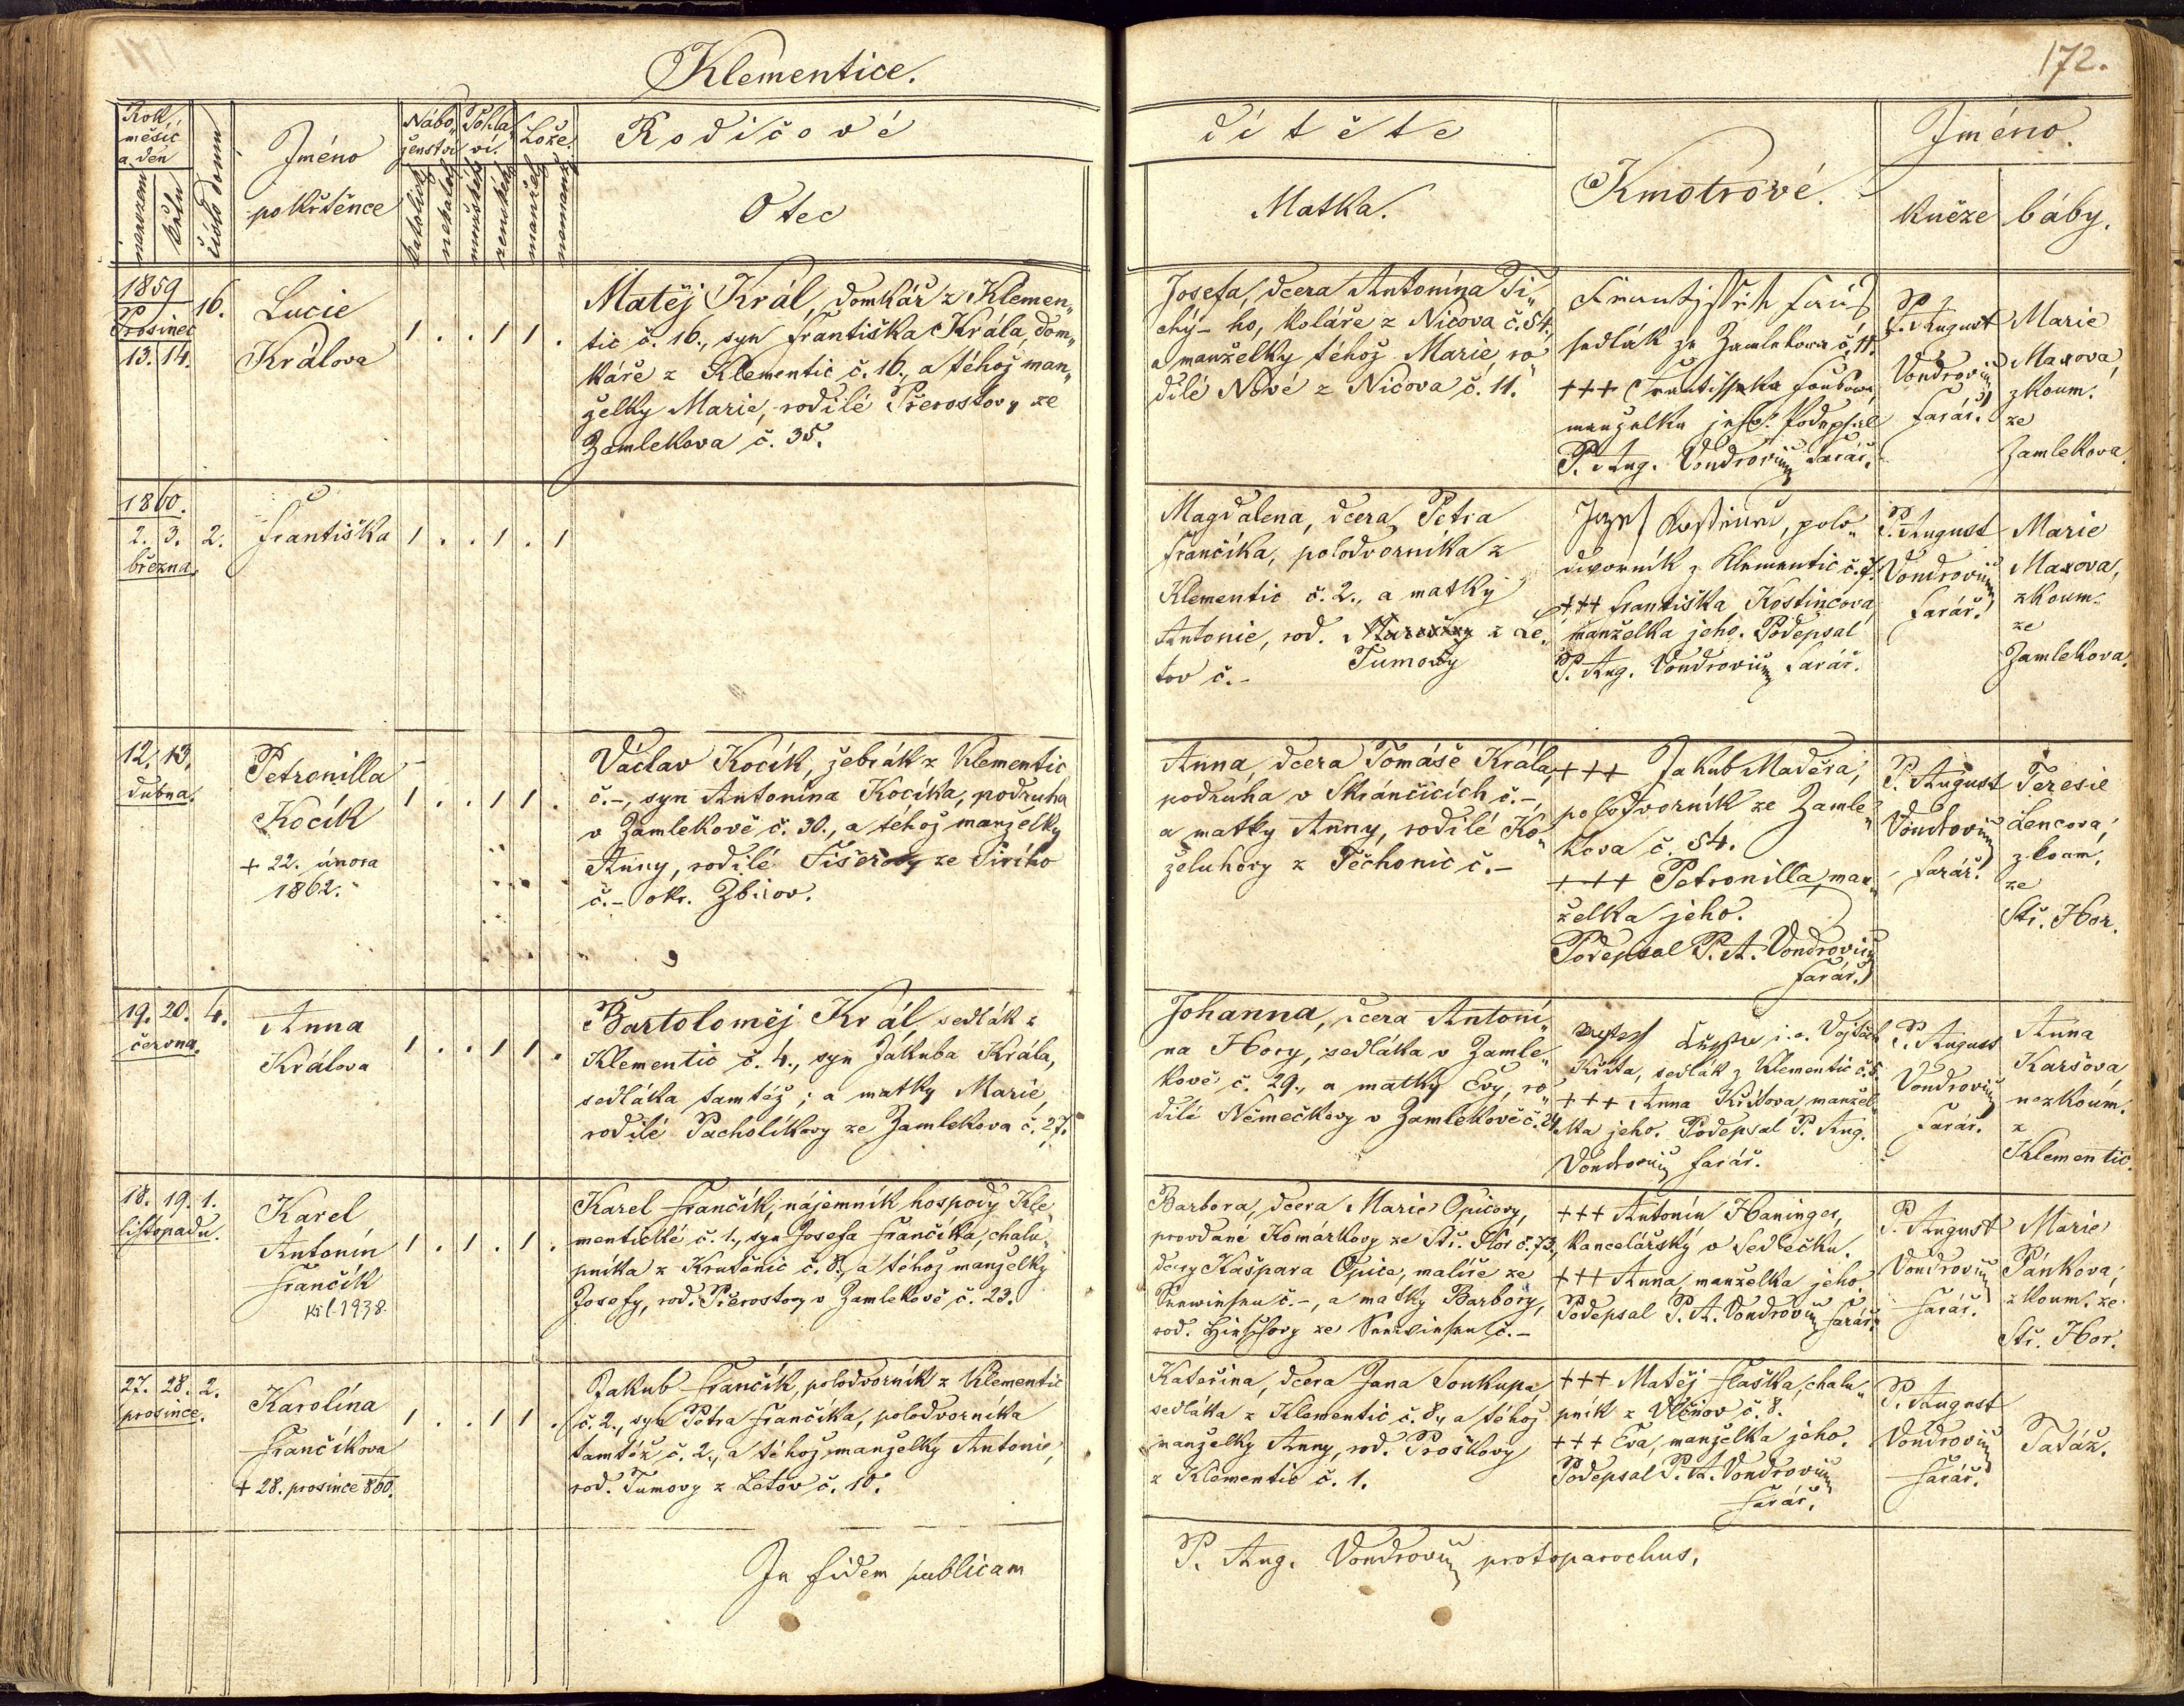 Klementice.
172.
Rok, měsíc a den
narozen
křtěn
číslo domu
Jméno
pokřtěnce
Nábo„
ženství
katolické
nekatol.
Pohla„
ví.
mužské
ženské
Lože.
manžel.
nemanž.
Rodičové
Otec
dítěte
Matka.
Kmotrové.
Jméno.
kněze
báby.
1859
Prosinec
13. 14.
16.
Lucie
Králova
1 . . 1 1 .
Matěj Král, domkář z Klemen„
tic č. 16., syn Františka Krála, dom„
káře z Klementic č. 16., a téhož man„
želky Marie, rodilé Přerostovy ze
Zamlekova č. 35.
Josefa, dcera Antonína Ti„
chý-ho, koláře z Nicova č. 54.,
a manželky téhož Marie, ro„
dilé Nové z Nicova č. 11.
sedlák ze Zamlekova č. 11.
+++ Františka
manželka jeho. Podepsal
P. Aug. Vondrovic farář.
P. August
Vondrovic
farář.
Marie
Maxova,
zkoum.
ze
Zamlekova.
1860.
2. 3.
března
2.
Františka
1 . . 1 . 1
Magdalena, dcera Petra
Frančíka, polodvorníka z
Klementic č. 2., a matky
Antonie, rod. z Le„
Tumovy
tov č. -
Josef polo„
dvorník z Klementic č. 7.
+++ Františka Kostincova
manželka jeho. Podepsal
P. Aug. Vondrovic farář.
P. August
Vondrovic
farář.
Marie
Maxova,
zkoum.
ze
Zamlekova.
12. 13.
dubna.
Petronilla
Kocík
+ 22. února
1862.
1 . . 1 1 .
Václav Kocík, žebrák z Klementic
č. -, syn Antonína Kocíka, podruha
v Zamlekově č. 30., a téhož manželky
Anny, rodilé Fišerovy ze
č. - okr. Zbirov.
Anna, dcera Tomáše Krála,
podruha v Skránčicích č. -,
a matky Anny, rodilé Ko„
želuhovy z Těchonic č. -
+++ Jakub Maděra,
polodvorník ze Zamle„
kova č. 54.
+++ Petronilla, man„
želka jeho.
Podepsal P. A. Vondrovic
farář.
P. August
Vondrovic
farář.
Teresie
Lencova,
zkoum.
ze
Stř. Hor.
19. 20.
června.
4.
Anna
Králova
1 . . 1 1 .
Bartoloměj Král, sedlák z
Klementic č. 4., syn Jakuba Krála,
sedláka tamtéž; a matky Marie,
rodilé Pacholíkovy ze Zamlekova č. 27.
Johanna, dcera Antoní„
na Hory, sedláka v Zamle„
kově č. 29., a matky Evy, ro„
dilé Němečkovy v Zamlekově č. 24.
i. e. Vojtěch
Křišta, sedlák z Klementic č. 5.
+++ Anna Křišťova, manžel„
ka jeho. Podepsal P. Aug.
Vondrovic farář.
P. August
Vondrovic
farář.
Anna
Karšova,
nezkoum.
z
Klementic.
18. 19.
listopadu.
1.
Karel
Antonín
Frančík
1938.
1 . 1 . 1 .
Karel Frančík, nájemník hospody Kle„
mentické č. 1., syn Josefa Frančíka, chalu„
pníka z Krutěnic č. 8., a téhož manželky
Josefy, rod. Přerostovy v Zamlekově č. 23.
Barbora, dcera Marie Opicovy,
provdané Komárkovy ze Stř. Hor č. 73.,
dcery Kašpara Opice, malíře ze
č. -, a matky Barbory,
rod. ze č. -
+++ Antonín Haninger,
kancelářský v Sedlečku.
+++ Anna, manželka jeho
Podepsal P. A. Vondrovic farář.
P. August
Vondrovic
farář.
Marie
Pánkova,
zkoum. ze
Stř. Hor.
27. 28.
prosince.
2.
Karolína
Frančíkova
+ 28. prosince 860.
1 . . 1 1 .
Jakub Frančík, polodvorník z Klementic
č. 2., syn Petra Frančíka, polodvorníka
tamtéž č. 2., a téhož manželky Antonie,
rod. Tumovy z Letov č. 10.
Kateřina, dcera Jana Soukupa,
sedláka z Klementic č. 8., a téhož
manželky Anny, rod. Proškovy
z Klementic č. 1.
+++ Matěj Flaška, chalu„
pník z Vlčnov č. 8.
+++ Eva, manželka jeho.
Podepsal P. A. Vondrovic
farář.
P. August
Vondrovic
farář.
Tatáž.
In fidem publicam
P. Aug. Vondrovic protoparochus.